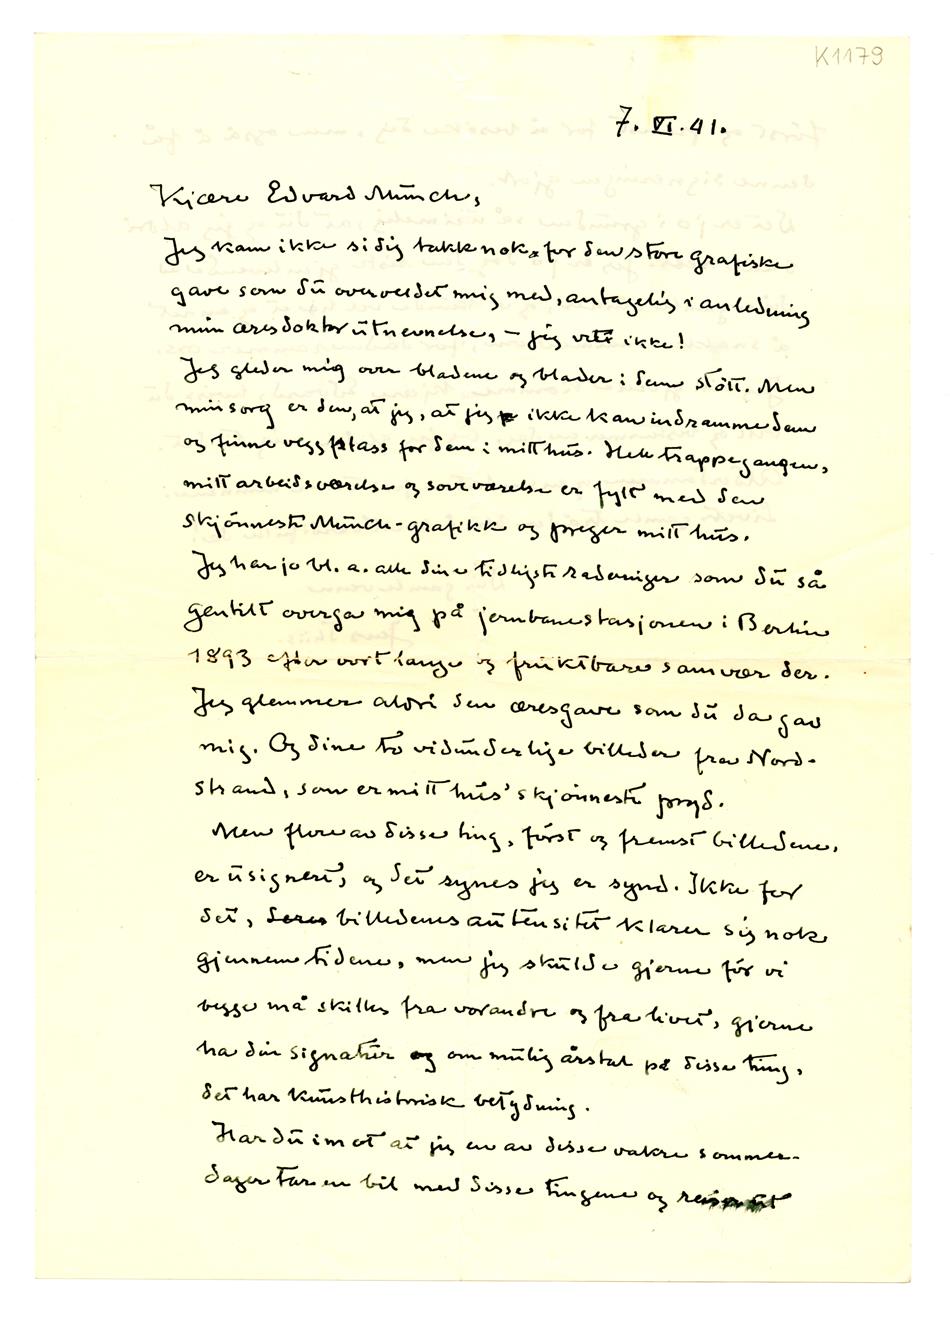 K1179
7. VI. 41.
Kjære Edvard Munch,
Jeg kan ikke si dig takk nok for den store grafiske
gave som du overveldet mig med, antagelig i anledning
min æresdoktorutnevnelse, – jeg vet ikke!
Jeg gleder mig over bladene og blader i dem støtt. Men
min sorg er den, at jeg, at jeg ikke kan indramme dem
og finne veggplass for dem i mitt hus. Hele trappegangen,
mitt arbeidsværelse og soveværelse er fylt med den
skjønneste Munch-grafikk og preger mitt hus.
Jeg har jo bl. a. alle dine tidligste raderinger som du så
gentilt overga mig på jernbanestasjonen i Berlin
1893 efter vort lange og fruktbare samvær der.
Jeg glemmer aldri den æresgave som du da gav
mig. Og dine to vidunderlige billeder fra Nord-
strand, som er mitt hus' skjønneste pryd.
Men flere av disse ting, først og fremst billedene,
er usignert, og det synes jeg er synd. Ikke for
det, deres billedenes autensitet klarer sig nok
gjennem tidene, men jeg skulde gjerne før vi
begge må skilles fra vorandre og fra livet, gjerne
ha din signatur og om mulig årstal på disse ting,
det har kunsthistorisk betydning.
Har du imot at jeg en av disse vakre sommer-
dager tar en bil med disse tingene og reiser ut